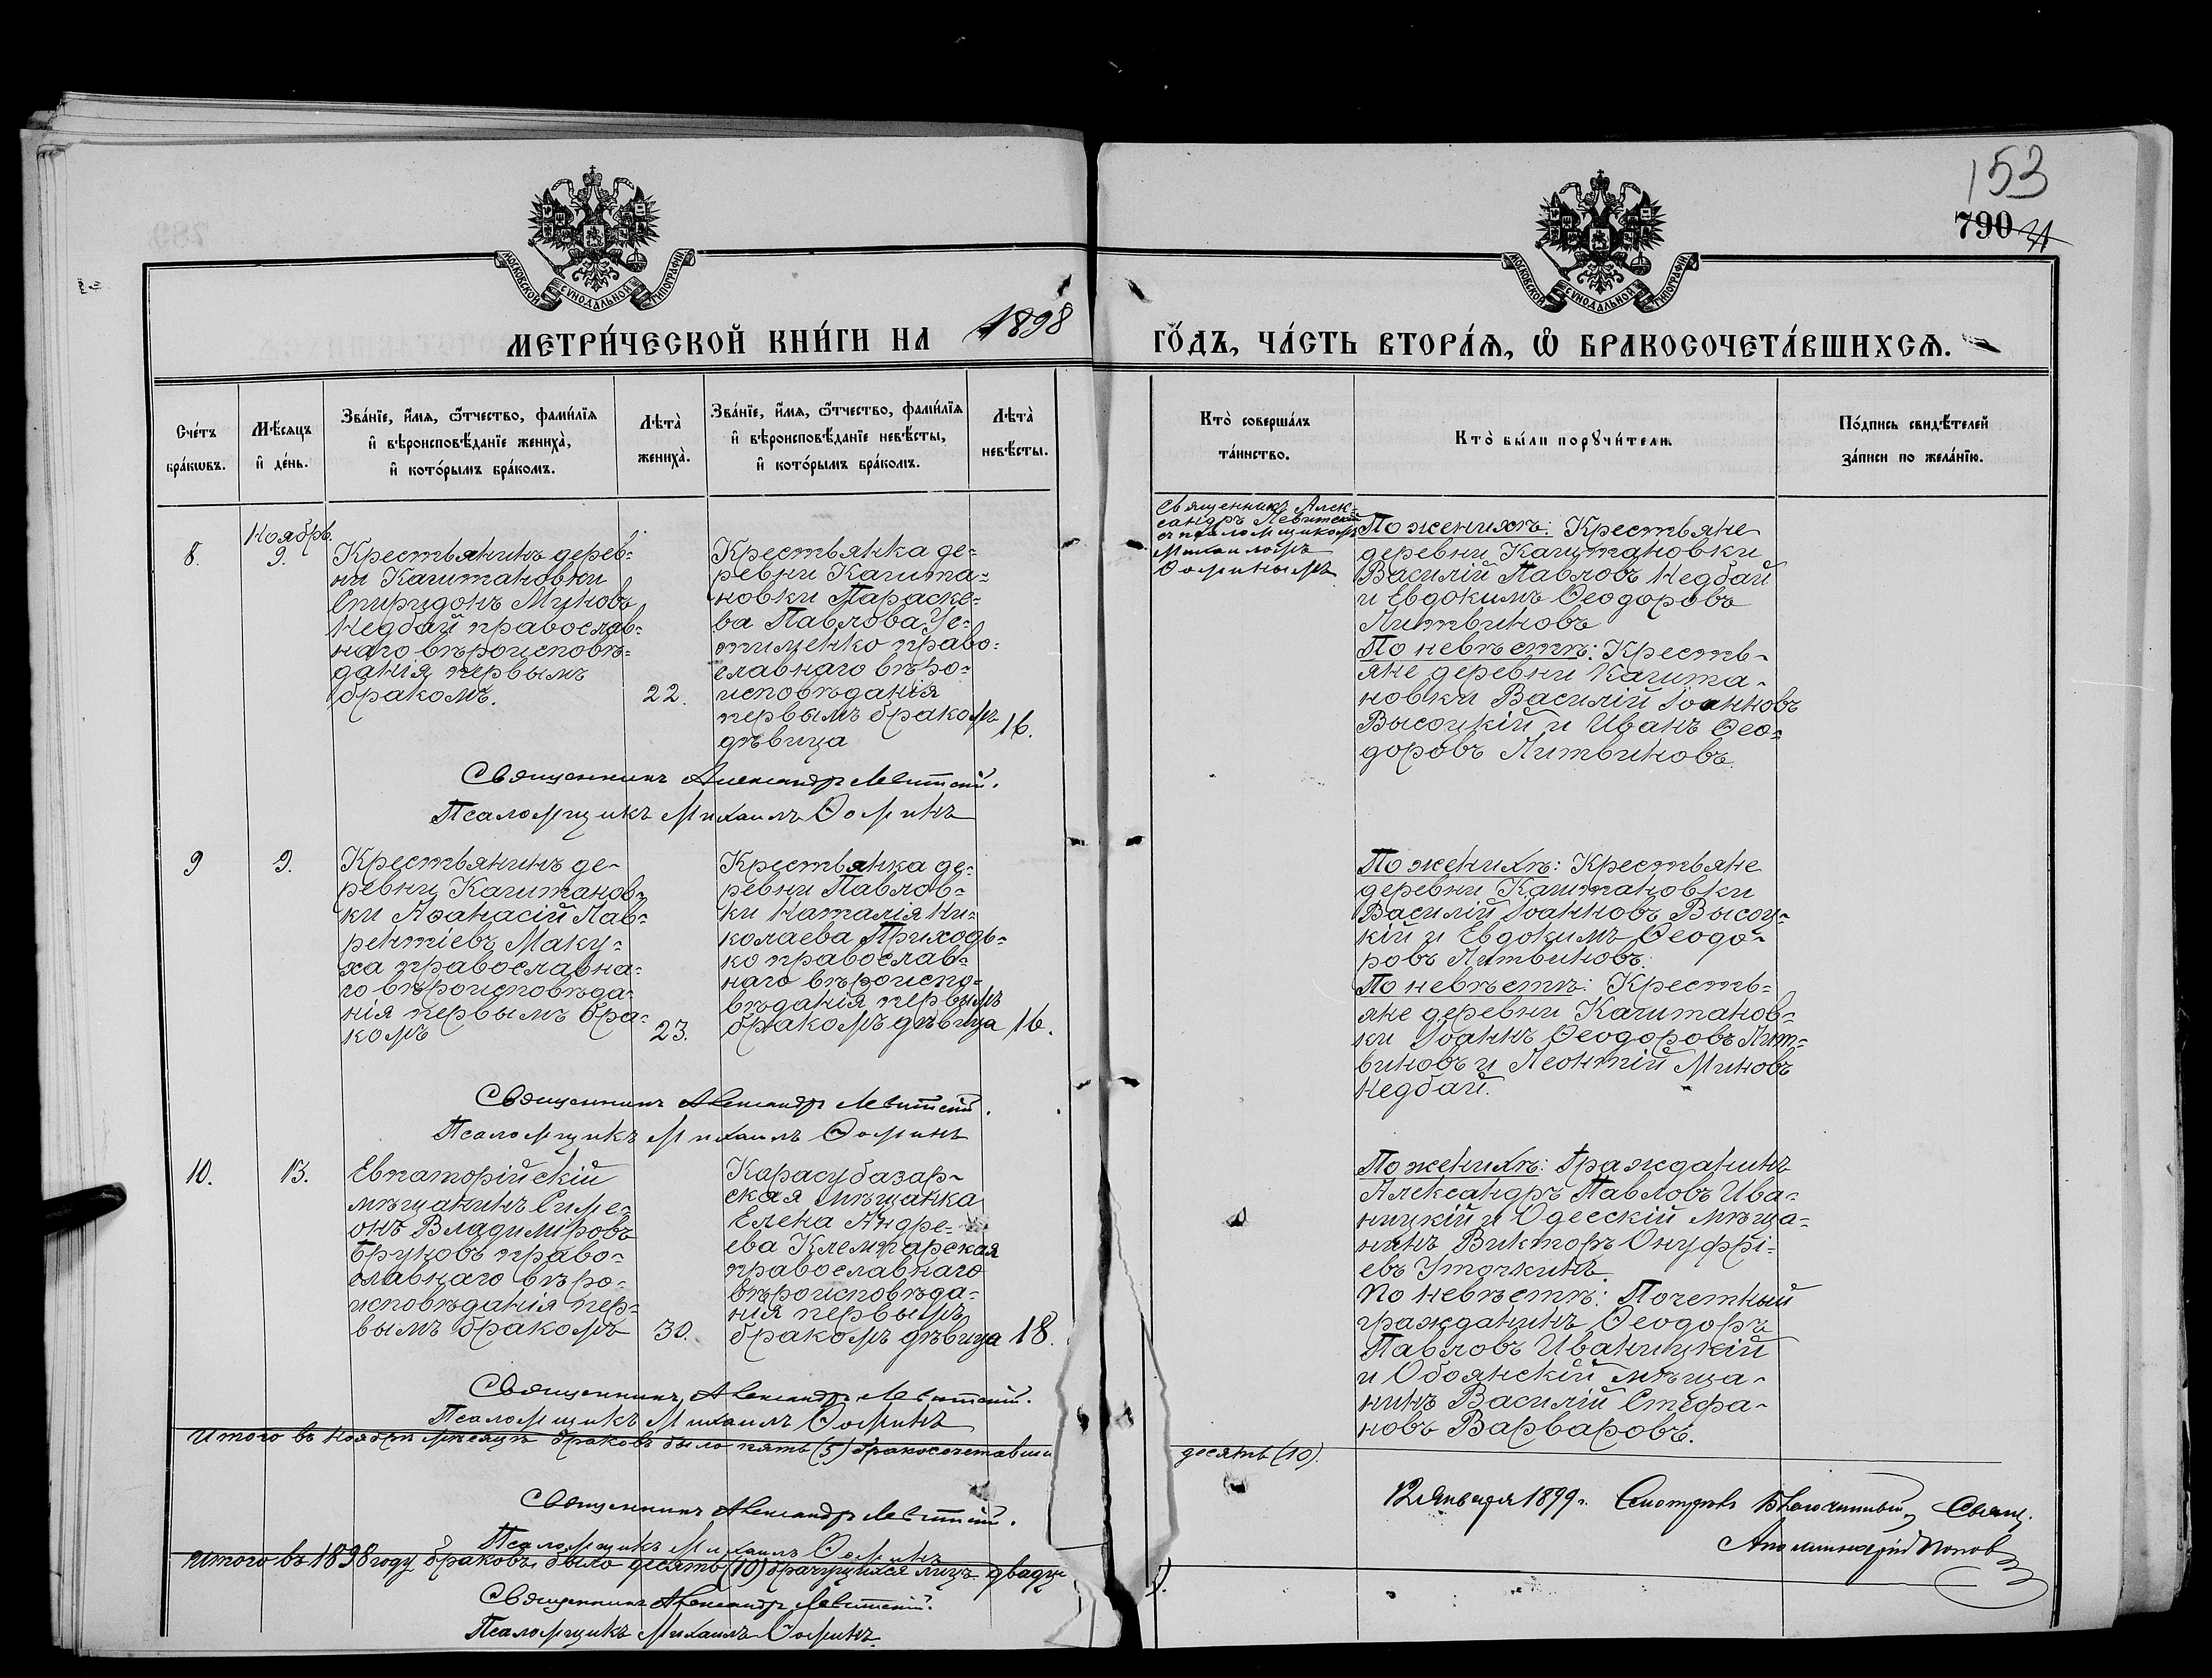 153
790
МОСКОВСКОЙ СѴНОДАЛЬНОЙ ТИПОГРАФІИ
МОСКОВСКОЙ СѴНОДАЛЬНОЙ ТИПОГРАФІИ
МЕТРИ́ЧЕСКОЙ КНИ́ГИ НА 1898 ГО́ДЪ, ЧА́СТЬ ВТОРА́Ѧ, Ѽ БРАКОСОЧЕТА́ВШИХСѦ.
Сче́тъ
бра́кѡвъ.
Мѣ́сяцъ
и҆ де́нь.
Зва́нїе, и҆́мѧ, ѻ҆́тчество, фами́лїѧ
и҆ вѣроисповѣ́данїе жениха̀,
и҆ кото́рымъ бра́комъ.
Лѣта̀
жениха̀.
Зва́нїе, и҆́мѧ, ѻ҆́тчество, фами́лїѧ
и҆ вѣроисповѣ́данїе невѣ́сты,
и҆ кото́рымъ бра́комъ.
Лѣта̀
невѣ́сты.
Кто̀ соверша́лъ
та́инство.
Кто̀ бы́ли порꙋчи́тели.
По́дпись свидѣ́телей
за́писи по жела́нїю.
8.
Ноябрь.
9.
Крестьянинъ дерев-
ни Кашитановки
Спиридонъ Миновъ
Недбай православ-
наго вѣроисповѣ-
данія, первымъ
бракомъ.
22.
Крестьянка де-
ревни Кашита-
новки Параске-
ва Павлова Ус-
тименко право-
славнаго вѣро-
исповѣданія
первымъ бракомъ
дѣвица
16.
Священникъ Алек-
сандръ Левитскій
съ псаломщикомъ
Михаиломъ
Ѳоминымъ
По женихѣ: Крестьяне
деревни Кашитановки
Василій Павловъ Недбай
и Евдокимъ Ѳеодоровъ
Литвиновъ
По невѣстѣ: Кресть-
яне деревни Кашита-
новки Василій Іоанновъ
Высоцкій и Иванъ Ѳео-
доровъ Литвиновъ.
Священникъ Александръ Левитскій.
Псаломщикъ Михаилъ Ѳоминъ
9
9.
Крестьянинъ де-
ревни Кашитанов-
ки Аѳанасій Лав-
рентіевъ Маку-
ха православна-
го вѣроисповѣда-
нія первымъ бра-
комъ
23.
Крестьянка де-
ревни Павлов-
ки Наталія Ни-
колаева Приходь-
ко православ-
наго вѣроиспо-
вѣданія первымъ
бракомъ дѣвица
16.
По женихѣ: Крестьяне
деревни Кашитановки
Василій Іоанновъ Высоц-
кій и Евдокимъ Ѳеодо-
ровъ Литвиновъ.
По невѣстѣ: Кресть-
яне деревни Кашитанов-
ки Іоаннъ Ѳеодоровъ Лит-
виновъ и Леонтій Миновъ
Недбай.
Священникъ Александръ Левитскій.
Псаломщикъ Михаилъ Ѳоминъ
10.
13.
Евпаторійскій
мѣщанинъ Симе-
онъ Владиміровъ
Бруновъ право-
славнаго вѣро-
исповѣданія пер-
вымъ бракомъ
30.
Карасубазар-
ская мѣщанка
Елена Андре-
ева Клемтарская
православнаго
вѣроисповѣда-
нія первымъ
бракомъ дѣвица
18.
По женихѣ: Гражданинъ
Александръ Павловъ Ива-
ницкій и Одесскій мѣща-
нинъ Викторъ Онуфрі-
евъ Уточкинъ.
По невѣстѣ: Почетный
гражданинъ Ѳеодоръ
Павловъ Иваницкій
и Обоянскій мѣща-
нинъ Василій Стефа-
новъ Варваровъ.
Священникъ Александръ Левитскій.
Псаломщикъ Михаилъ Ѳоминъ
Итого въ Ноябрѣ мѣсяцѣ браковъ было пять (5) бракосочетавши
десять (10).
Священникъ Александръ Левитскій.
Псаломщикъ Михаилъ Ѳоминъ
12 Января 1899 г. Смотрѣлъ Благочинный, Свящ.
Аполлинарій Поповъ
Итого въ 1898 году браковъ было десять (10) брачущихся лицъ двадц
Священникъ Александръ Левитскій.
Псаломщикъ Михаилъ Ѳоминъ.